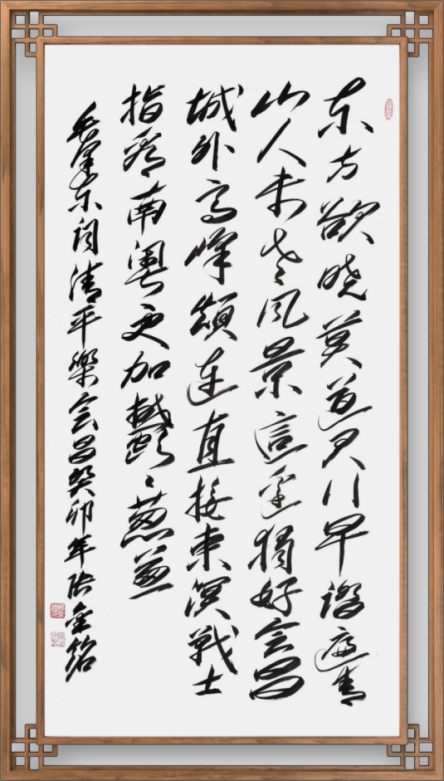 东方欲晓莫道君行早踏遍青
山人未老风景這邊獨好会昌
城外高峰顛连直接東溟戰士
指看南粤更加鬱々葱葱
毛澤东词清平樂会昌癸卯年张金铭